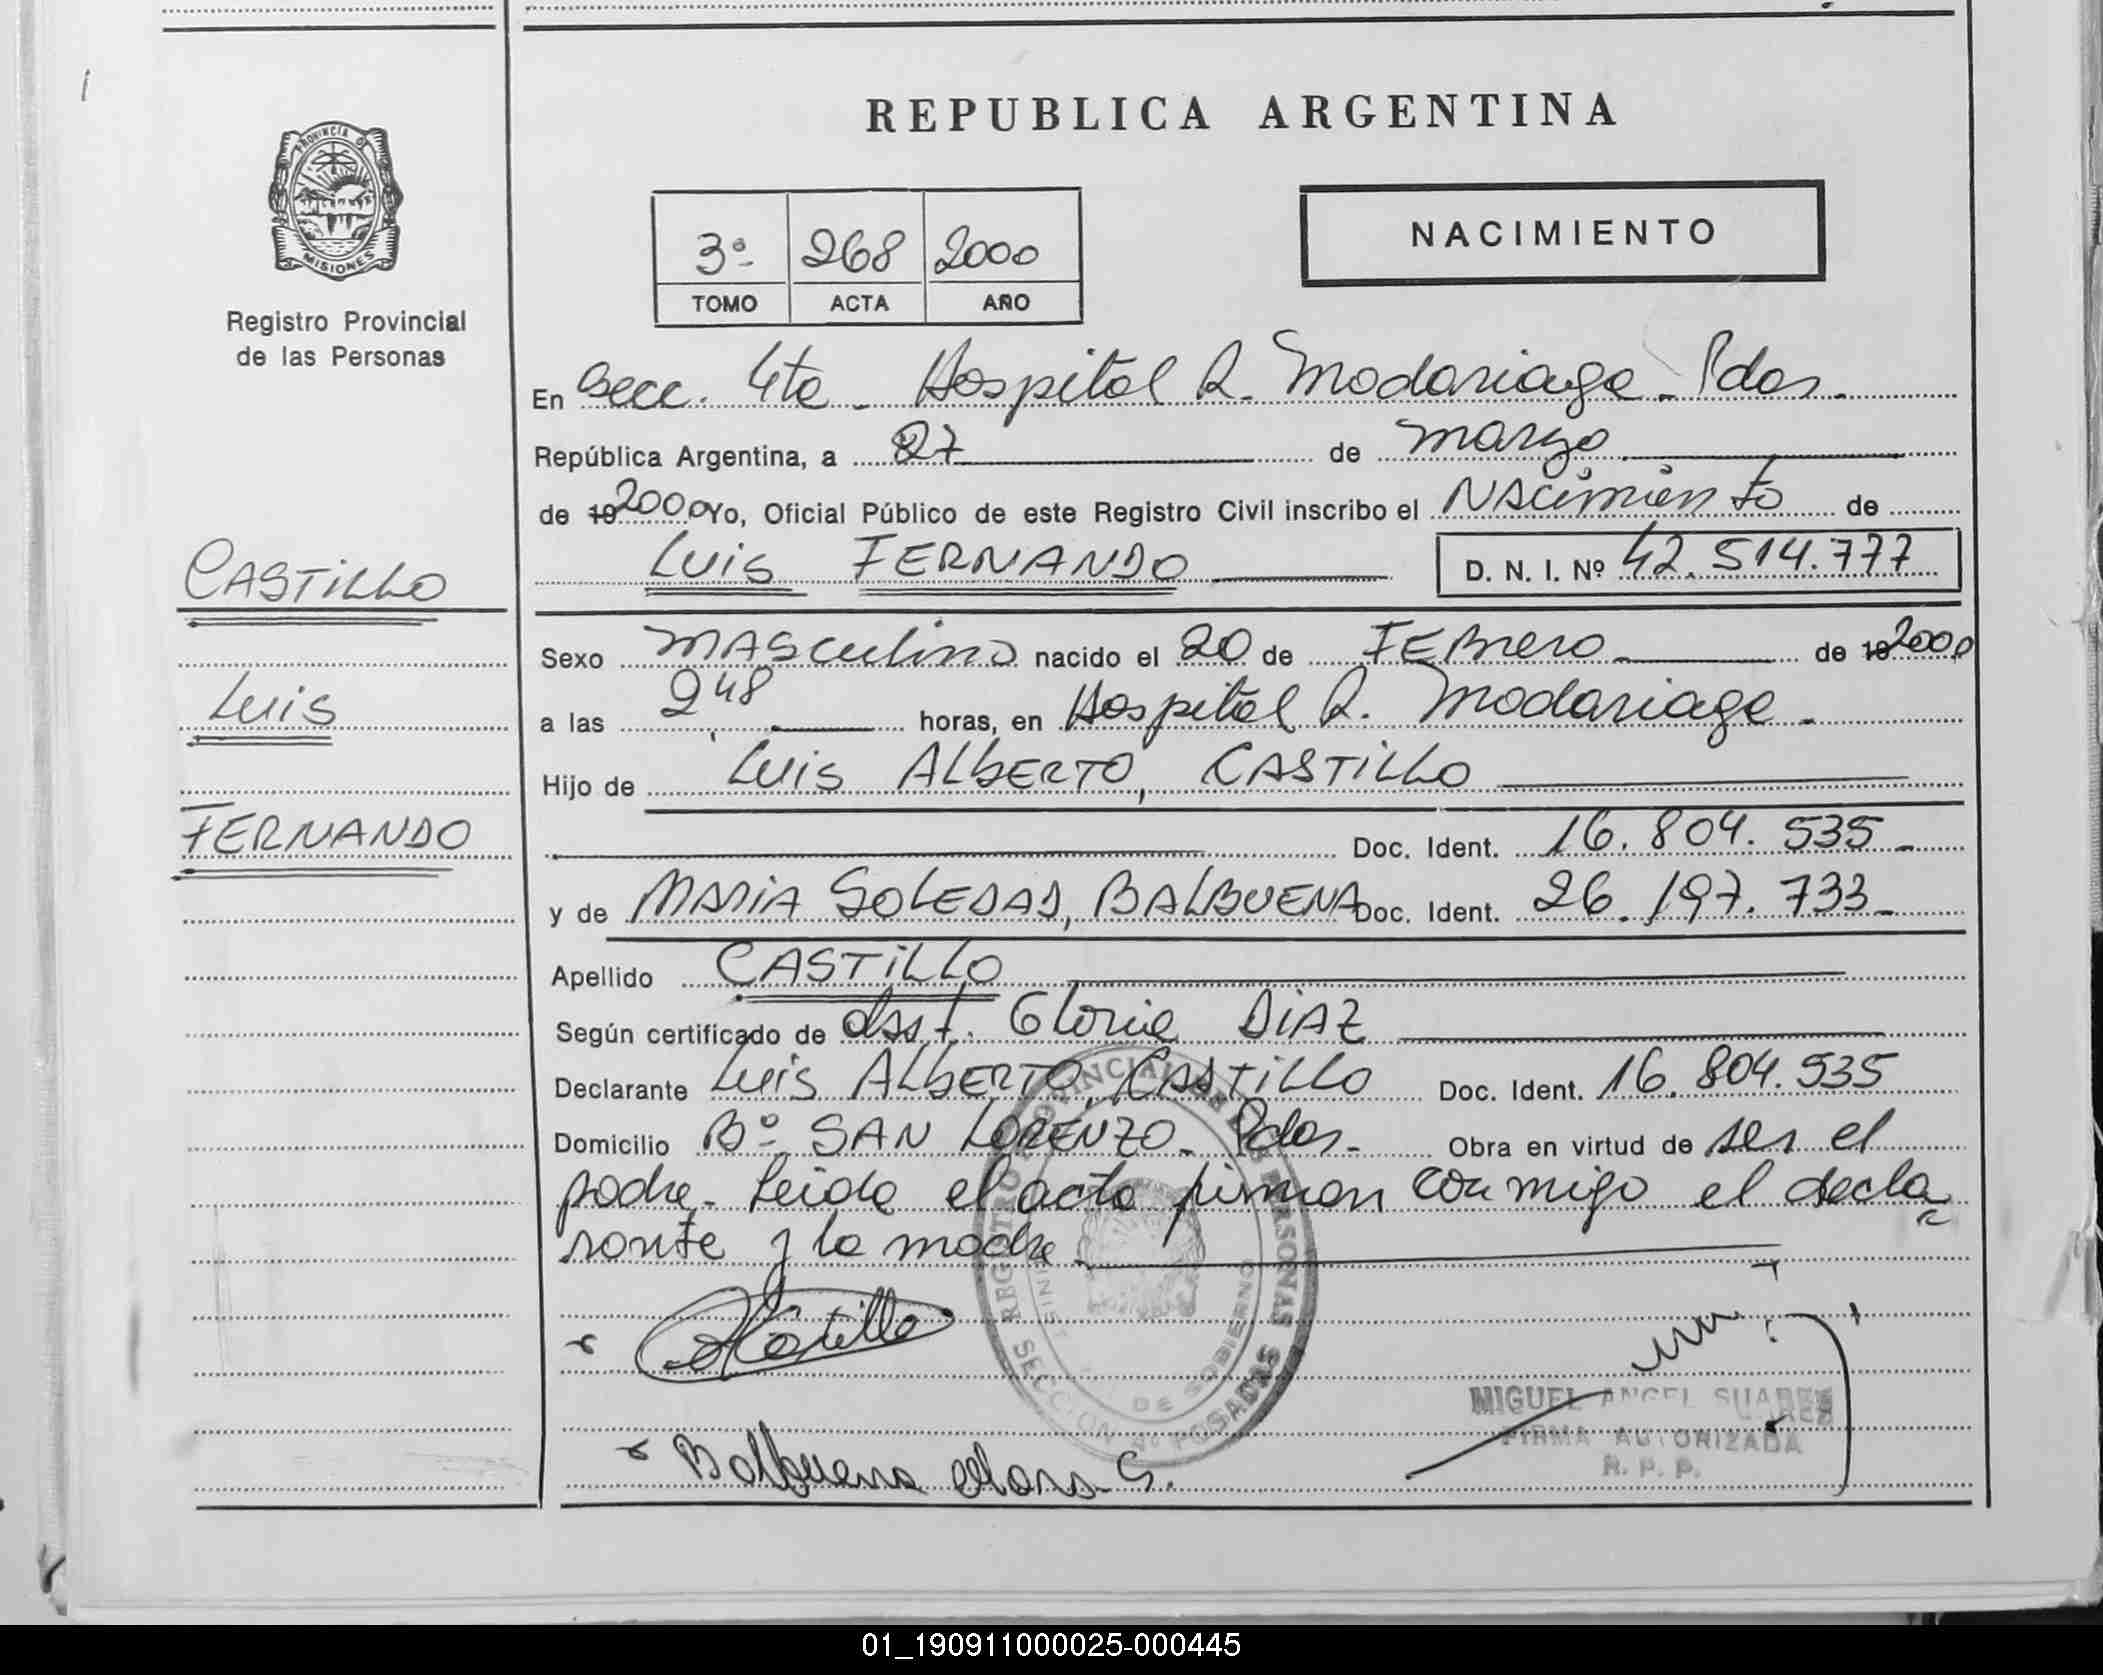 REPUBLICA ARGENTINA
PROVINCIA DE
MISIONES
Registro Provincial
de las Personas
3º 268 2000
TOMO ACTA AÑO
NACIMIENTO
En Secc. 4ta - Hospital R. Madariaga - Pdas.
República Argentina, a 27 de marzo
de 19 2000 Yo, Oficial Público de este Registro Civil inscribo el NAcimiento de
Luis FERNANDO D. N. I. Nº 42.514.777
CASTILLO
Luis
FERNANDO
Sexo MAScULino nacido el 20 de FEBrero de 19 2000
a las 2 48 horas, en Hospital R. Madariaga -
Hijo de Luis ALBERTO, CASTILLO
Doc. Ident. 16.804.535 -
y de MARIA SOLEDAD, BALBUENA Doc. Ident. 26.197.733 -
Apellido CASTILLO
Según certificado de obst. Gloria DIAZ
Declarante Luis ALBERTO, CASTILLO Doc. Ident. 16.804.535
Domicilio Bº SAN LORENZO - Pdas - Obra en virtud de ser el
padre - Leida el acta firman conmigo el decla
rante y la madre
Castillo
Balbuena Maria S.
REGISTRO PROVINCIAL DE LAS PERSONAS
DE GOBIERNO
SECCION 4º POSADAS
MIGUEL ANGEL SUAREZ
FIRMA AUTORIZADA
R. P. P.
01_190911000025-000445